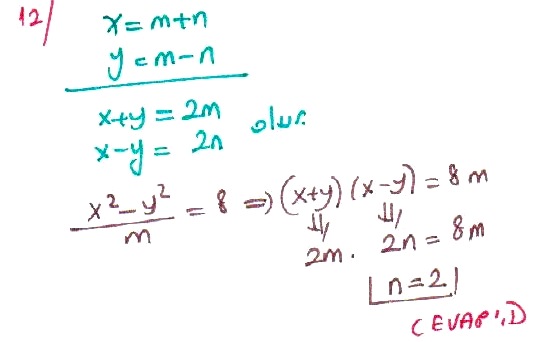 12/
x = m+n
y = m-n
x+y = 2m
x-y = 2n olur.
x²-y²/m = 8 ⇒ (x+y)(x-y) = 8m
⇓ ⇓
2m. 2n = 8m
n=2
CEVAP: D